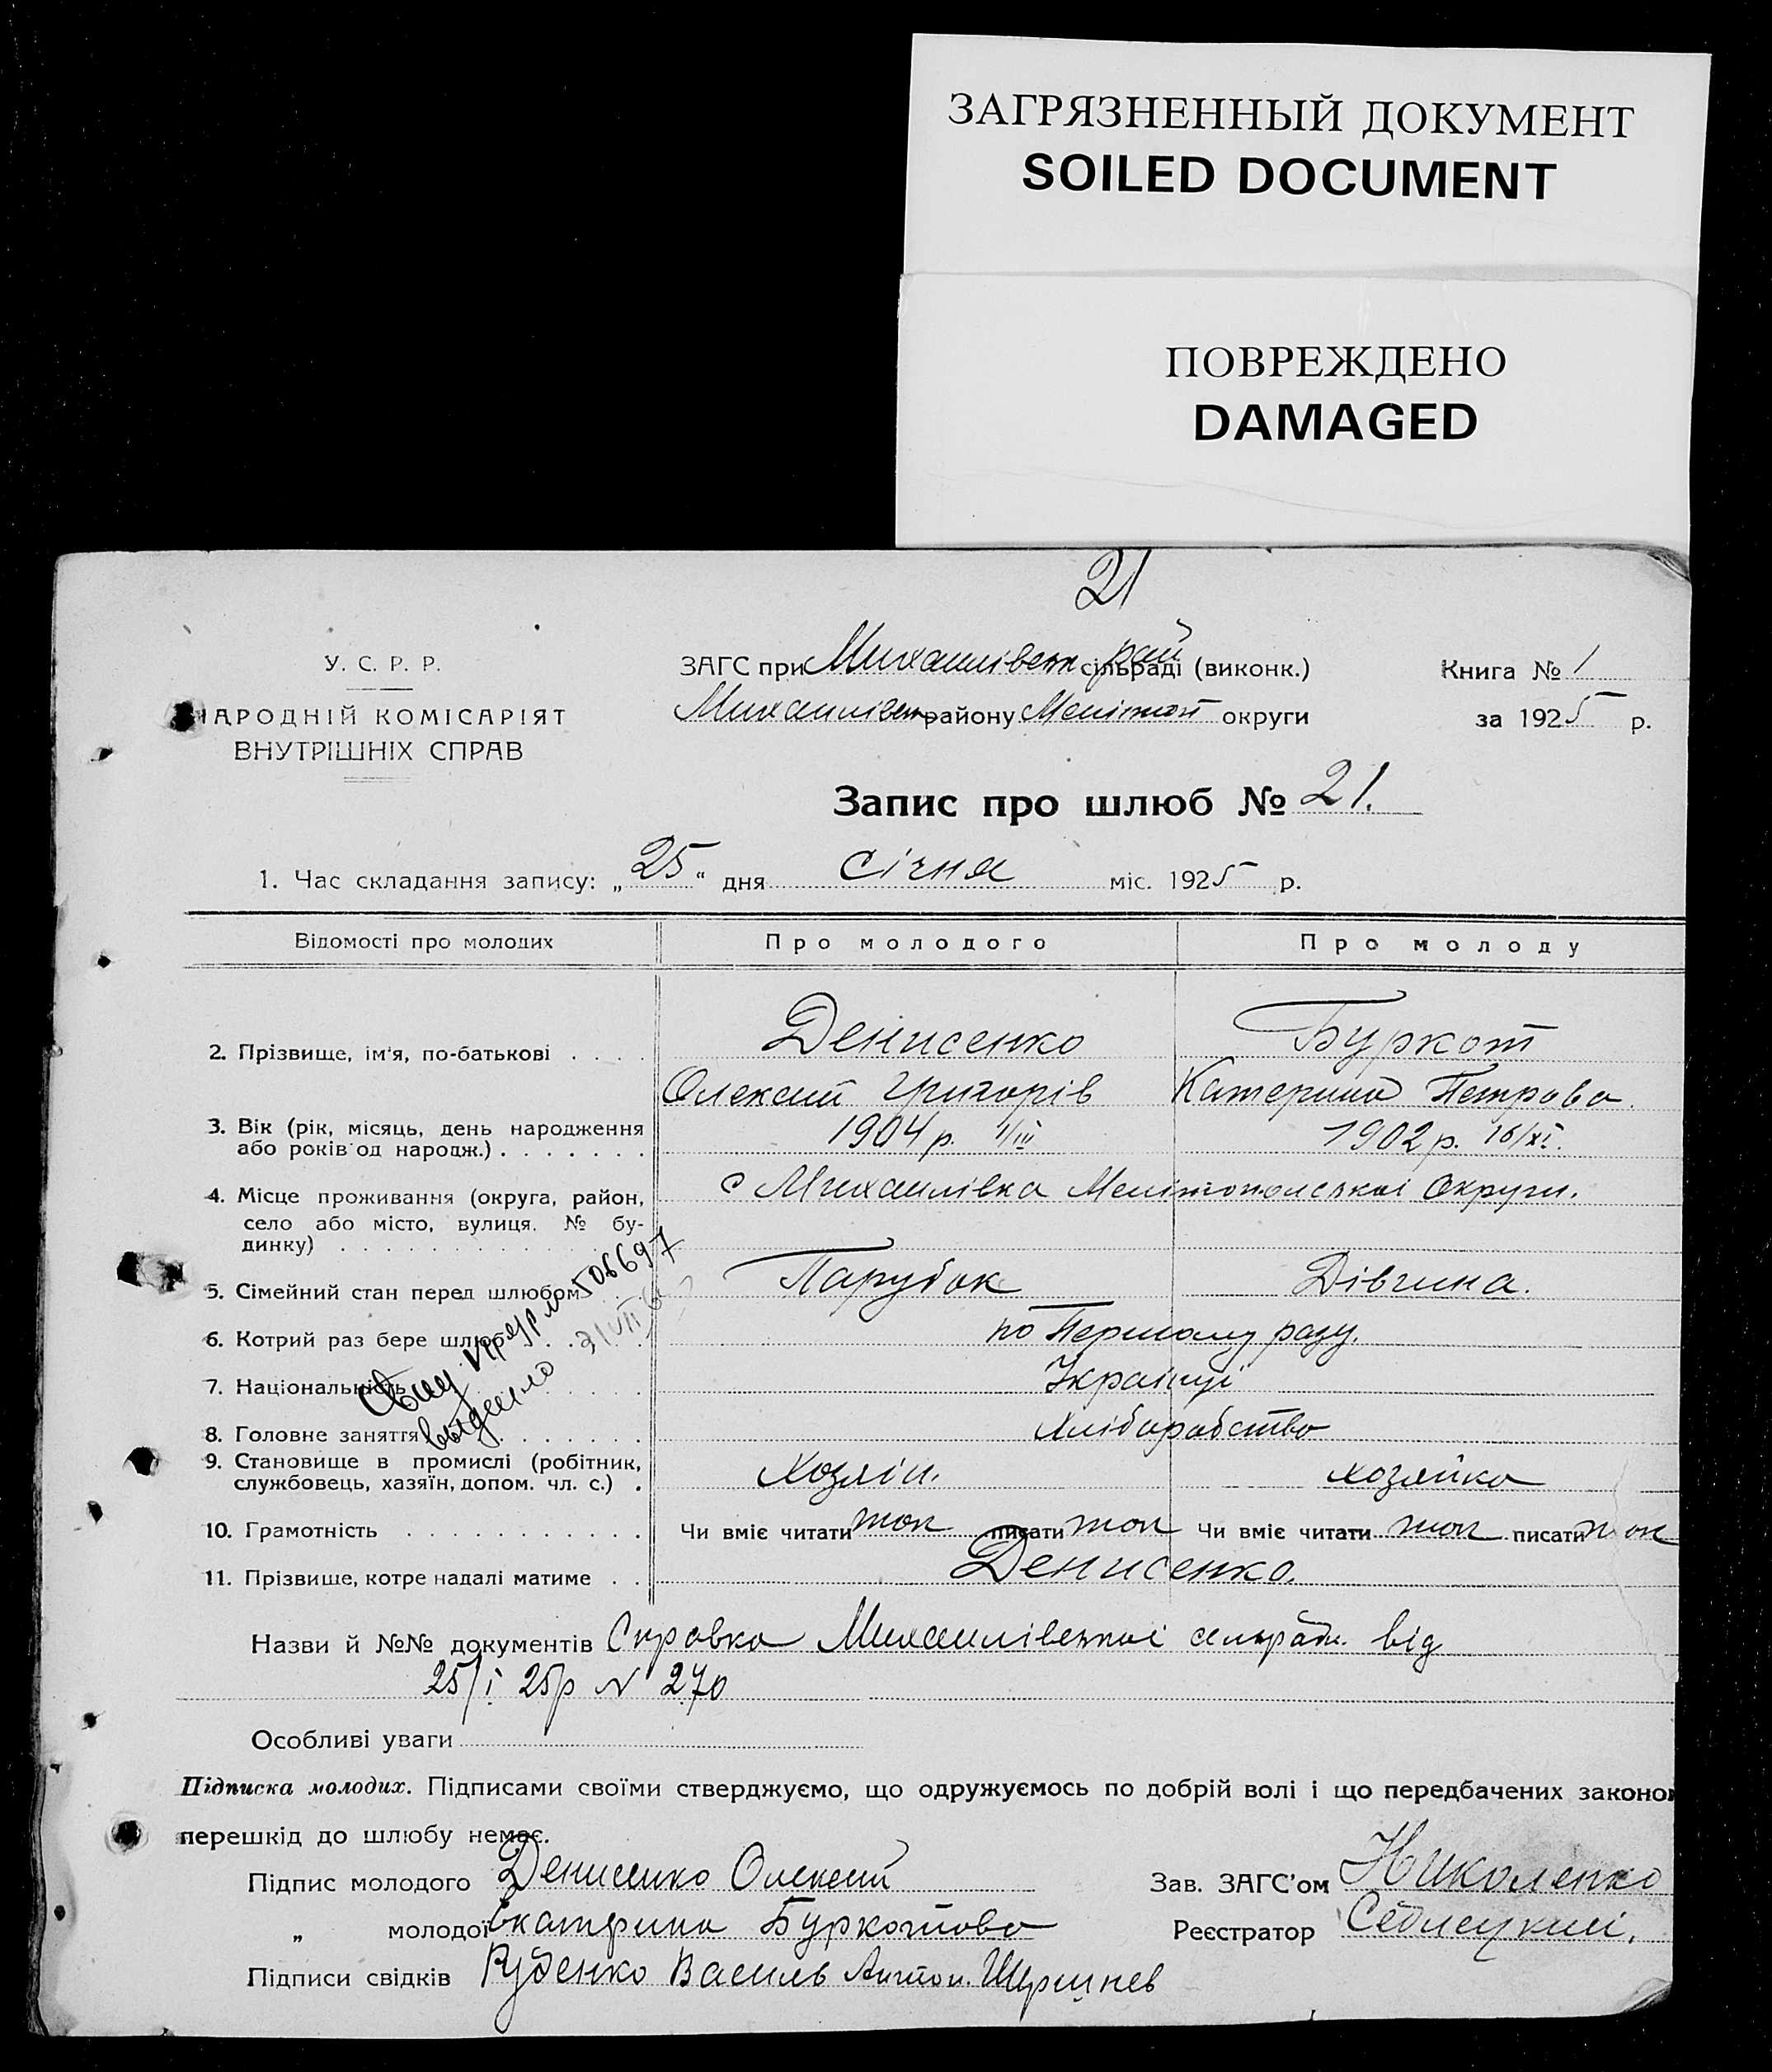 ЗАГРЯЗНЕННЫЙ ДОКУМЕНТ
SOILED DOCUMENT
ПОВРЕЖДЕНО
DAMAGED
21
У. С. Р. Р.
НАРОДНІЙ КОМІСАРІЯТ
ВНУТРІШНІХ СПРАВ
ЗАГС при Михайлівськ рай сільраді (виконк.)
Михайлівськ району Мелітоп округи
Книга № 1
за 1925 р.
Запис про шлюб № 21.
1. Час складання запису: „25" дня січня міс. 1925 р.
Відомості про молодих Про молодого Про молоду
2. Прізвище, ім'я, по-батькові . . . . Денисенко Буркот
Олексій Григорів Катерина Петрова
3. Вік (рік, місяць, день народження або років од народж.) . . . . . . . 1904 р. 1/III 1902 р. 16/XI.
4. Місце проживання (округа, район, село або місто, вулиця. № будинку) с Михайлівка Мелітопольскої Округи.
5. Сімейний стан перед шлюбом Парубок Дівчина.
6. Котрий раз бере шлюб по Першому разу.
7. Національність Українці
8. Головне заняття Хліборобство
9. Становище в промислі (робітник, службовець, хазяїн, допом. чл. с.) . Хозяін. хозяйка
10. Грамотність Чи вміє читати так писати так Чи вміє читати так писати так
11. Прізвище, котре надалі матиме . . Денисенко.
506697
Назви й №№ документів Справка Михайлівської сільради. від
25/I 25р N 270
Особливі уваги
Підписка молодих. Підписами своїми стверджуємо, що одружуємось по добрій волі і що передбачених законом
перешкід до шлюбу немає.
Підпис молодого Денисенко Олексей
Зав. ЗАГС'ом Николенко
„ молодої Екатирина Буркотова
Реєстратор Седлецкий.
Підписи свідків Руденко Василь Антон.